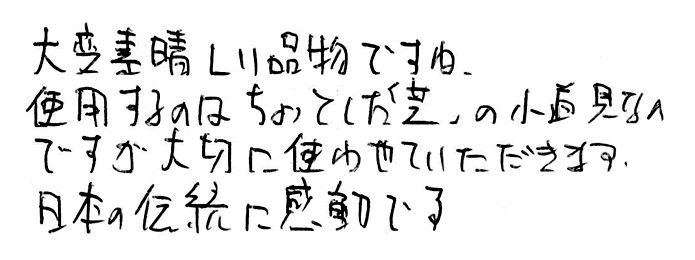 大変素晴しい品物ですね.
使用するのはちょっとした「芝」の小道具なん
ですが大切に使わせていただきます.
日本の伝統に感動でる